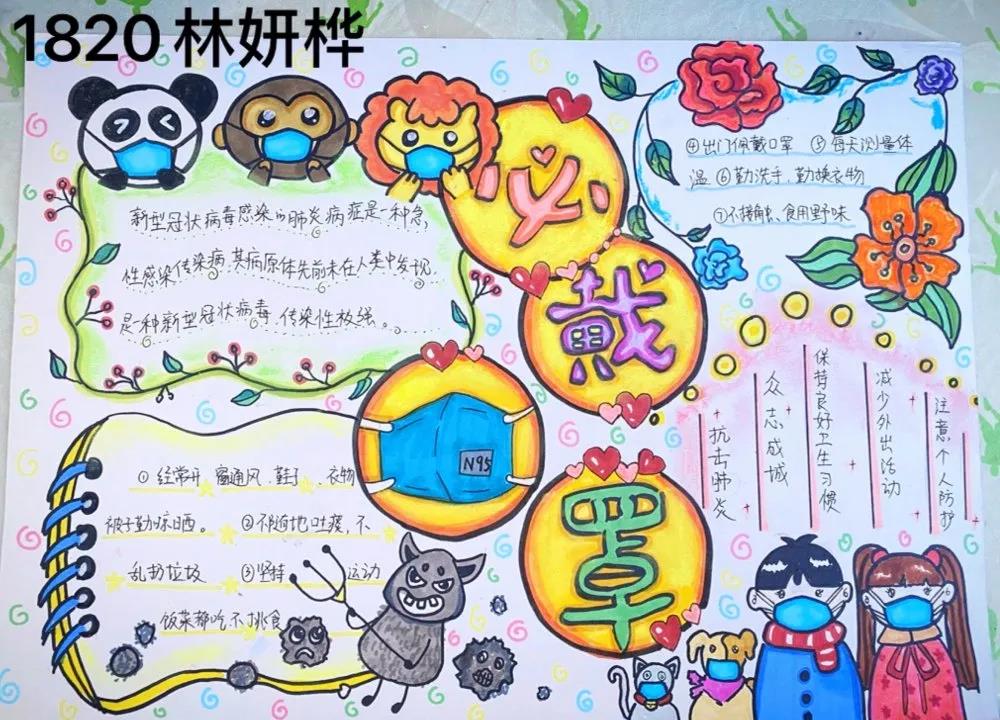 1820 林妍桦
新型冠状病毒感染的肺炎病症是一种急,
性感染传染病,其病原体先前未在人类中发现,
是一种新型冠状病毒,传染性极强。
必
戴
罩
N95
④出门佩戴口罩 ⑤每天测量体
温 ⑥勤洗手、勤换衣物
⑦不接触、食用野味
抗击肺炎
众志成城
保持良好卫生习惯
减少外出活动
注意个人防护
①经常开窗通风,鞋子、衣物
被子勤晾晒。 ②不随地吐痰,不
乱扔垃圾 ③坚持 运动
饭菜都吃不挑食